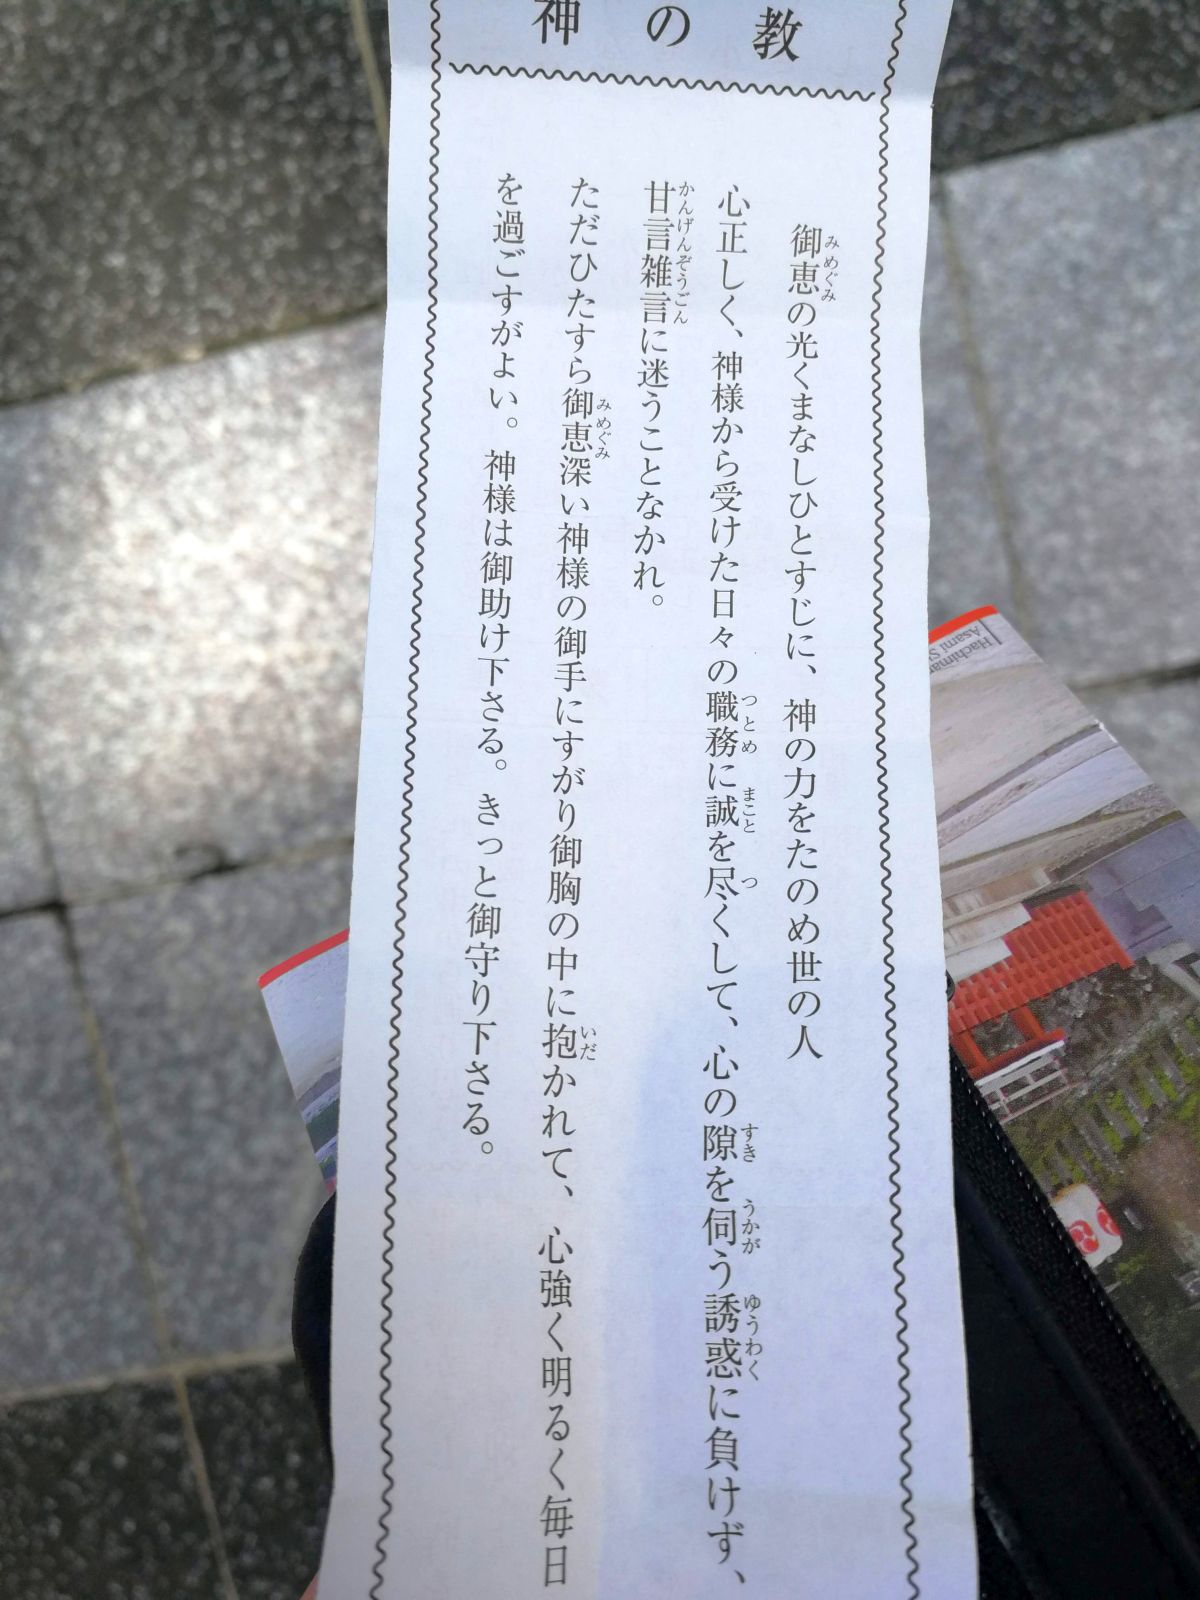 神の教
御恵の光くまなしひとすじに、神の力をたのめ世の人
心正しく、神様から受けた日々の職務に誠を尽くして、心の隙を伺う誘惑に負けず、
甘言雑言に迷うことなかれ。
ただひたすら御恵深い神様の御手にすがり御胸の中に抱かれて、心強く明るく毎日
を過ごすがよい。神様は御助け下さる。きっと御守り下さる。
みめぐみ
つとめ
まこと
つ
すき
うかが
ゆうわく
かんげんぞうごん
みめぐみ
いだ
Asami S